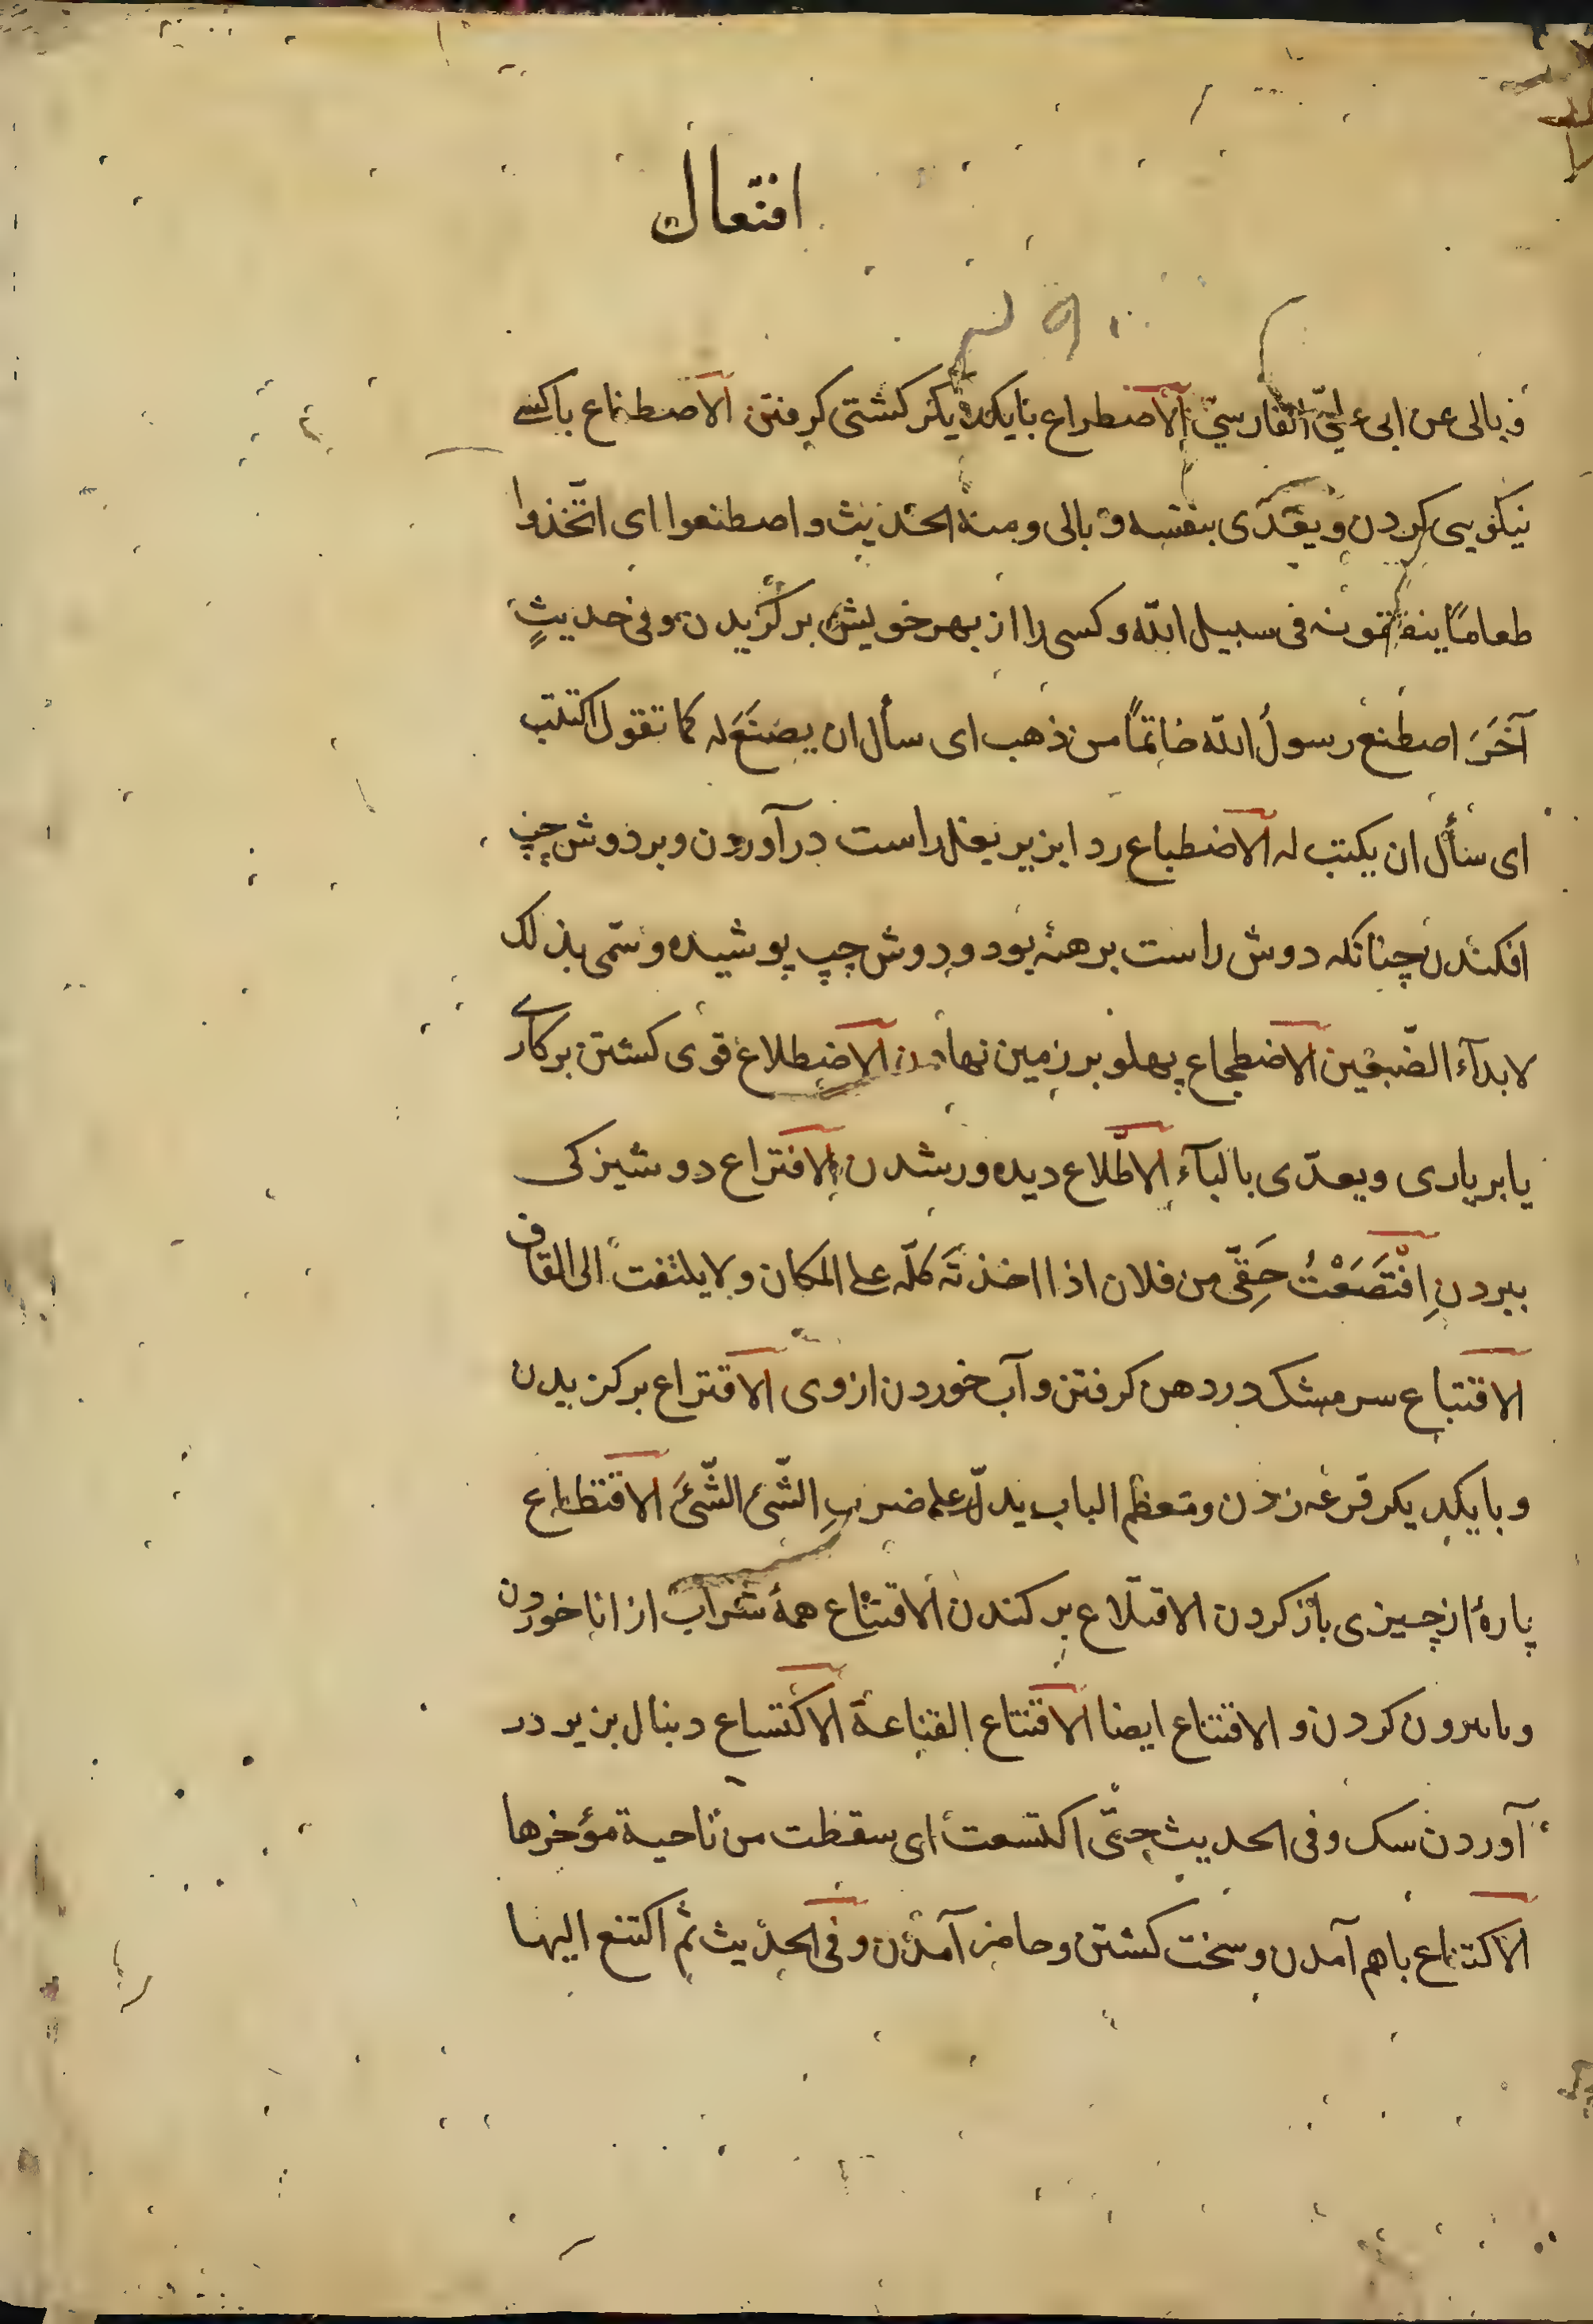 افتعال
و بالی عن ابی علیّ الفارسیّ الاصطراع بایکدیکر کشتی کرفتن الاصطناع باکسے
نیکویی کردن و یعدّی بنفسه و بالی ومنه الحدیث واصطنعوا ای اتّخذوا
طعامًا ینفقونه فی سبیل الله وکسی را از بهر خویش برکزیدن وفی حدیثٍ
آخَرَ اصطنع رسولُ الله خاتمًا من ذهب ای سأل ان یصنَعَ له کما تقول اکتتب
ای سأل ان یکتب له الاضطباع ردا بزیر بغل راست درآوردن وبر دوش چپ
افکندن چنانکه دوش راست برهنه بود ودوش چپ پوشیده وسمّی بذلک
لابدآء الضّبعین الاضطجاع پهلو بر زمین نهادن الاضطلاع قوی کشتن برکارے
یا بر باری ویعدّی بالبآء الاطّلاع دیده ور شدن الافتراع دوشیزکی
ببردن اِفْتَصَعْتُ حَقّی من فلان اذا اخذته کلّه علی المکان ولا یلتفت الی القاف
الاقتباع سر مشک در دهن کرفتن وآب خوردن از وی الاقتراع برکزیدن
وبایکدیکر قرعه زدن ومعظم الباب یدلّ علی ضرب الشّئ الشّئَ الاقتطاع
پارهٔ از چیزی باز کردن الاقتلاع برکندن الاقتناع همهٔ شراب از انا خوردن
و کردن و الاقتناع ایضا الاقتناع القناعة الاکتساع دنبال بزیر در
آوردن سک وفی الحدیث حتّی اکتسعت ای سقطت من ناحیة مؤخرها
الاکتناع باهم آمدن وسخت کشتن وحاضر آمدن وفی الحدیث ثم اکتنع الیها